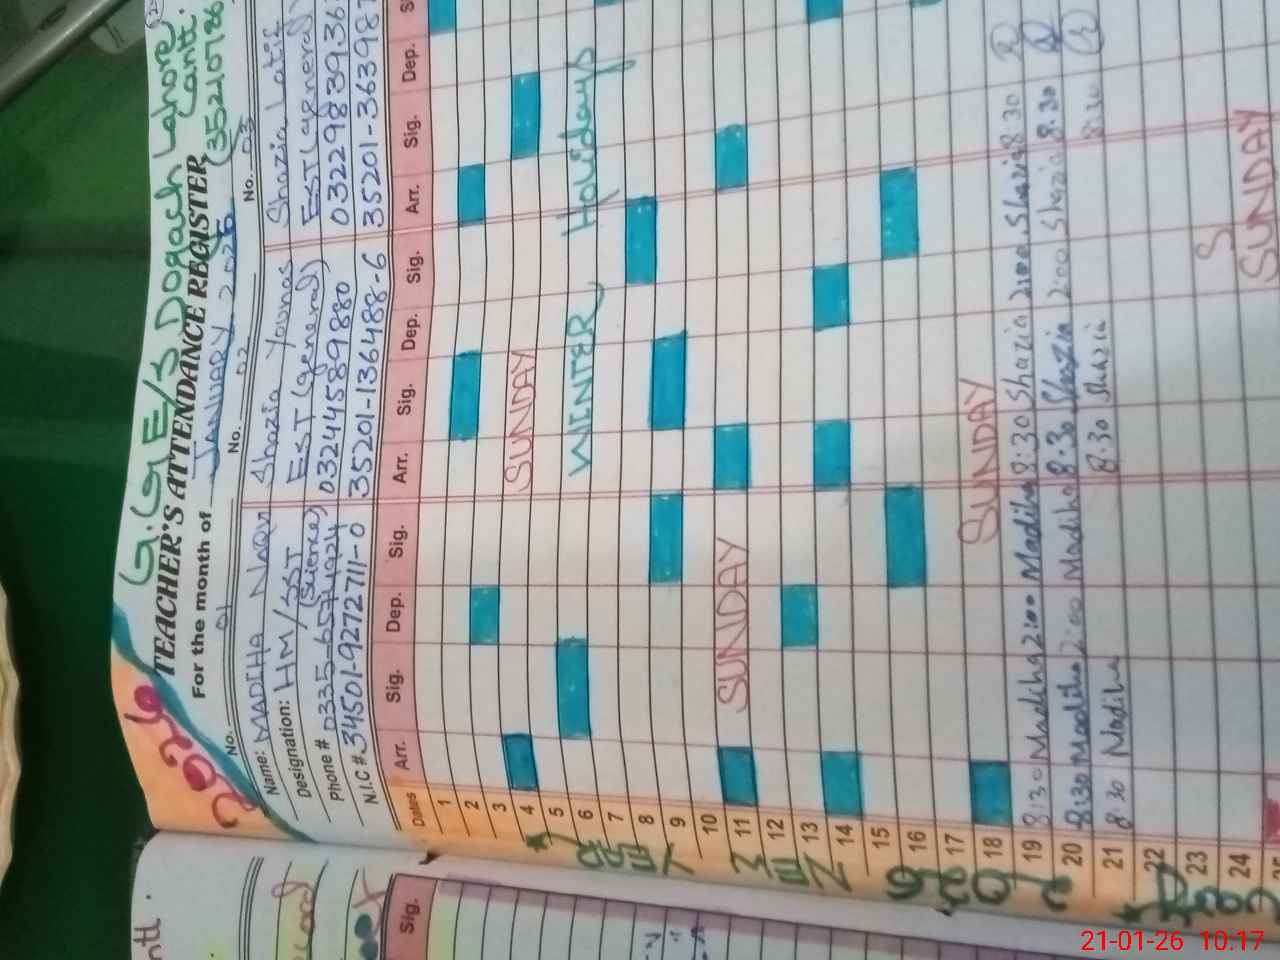 2026
G.G.E/S Dogach Lahore
Cantt.
TEACHER'S ATTENDANCE REGISTER
For the month of JANUARY, 2026
No. 01
Name: MADIHA NAQVI
Designation: HM/SST
(Science)
Phone # 0335-6574924
N.I.C #. 34501-9272711-0
No. 02
Shazia Younas
EST (general)
03244589880
35201-136488-6
No. 03
Shazia Latif
EST (general)
Dates Arr. Sig. Dep. Sig. Arr. Sig. Dep. Sig. Arr. Sig. Dep.
1
2
3
4 SUNDAY
5
6 WINTER Holidays
7
8
9
10
11 SUNDAY
12
13
14
15
16
17
18 SUNDAY
19 8:30 Madiha 2:00 Madiha 8:30 Shazia 2:00 Shazia 8:30
20 8:30 Madiha 2:00 Madiha 8:30 Shazia 2:00 Shazia 8:30
21 8:30 Madiha 8:30 Shazia 8:30
22
23
24
SUNDAY
Sig.
21-01-26 10:17